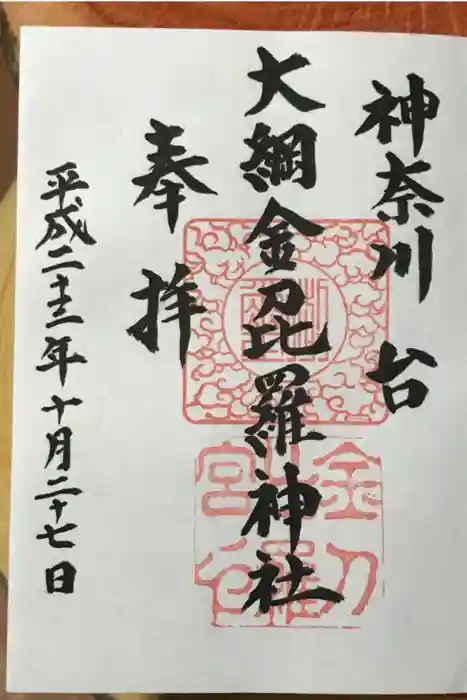 神奈川台
大綱金毘羅神社
奉拝
平成二十三年十月二十七日